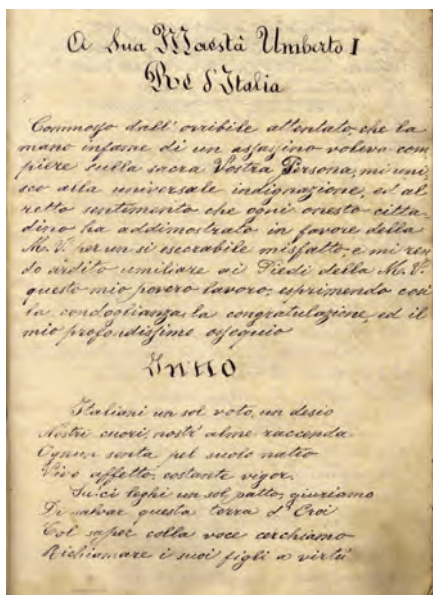 A Sua Maestà Umberto I
Re d'Italia
Commosso dall' orribile attentato, che la
mano infame di un assassino voleva com
piere sulla sacra Vostra Persona, mi uni
sco alla universale indignazione, ed al
retto sentimento che ogni onesto citta-
dino ha addimostrato in favore della
M. V. per un si esecrabile misfatto, e mi ren
do ardito umiliare ai Piedi della M. V.
questo mio povero lavoro; esprimendo così
la condoglianza, la congratulazione, ed il
mio profondissimo ossequio
Inno
Italiani un sol voto, un desio
Nostri cuori, nostr' alme raccenda
Ognun senta pel suolo natio
Vivo affetto, costante vigor.
Su ci leghi un sol patto, giuriamo
Di salvar questa terra d' Eroi
Col saper colla voce cerchiamo
Richiamare i suoi figli a virtù